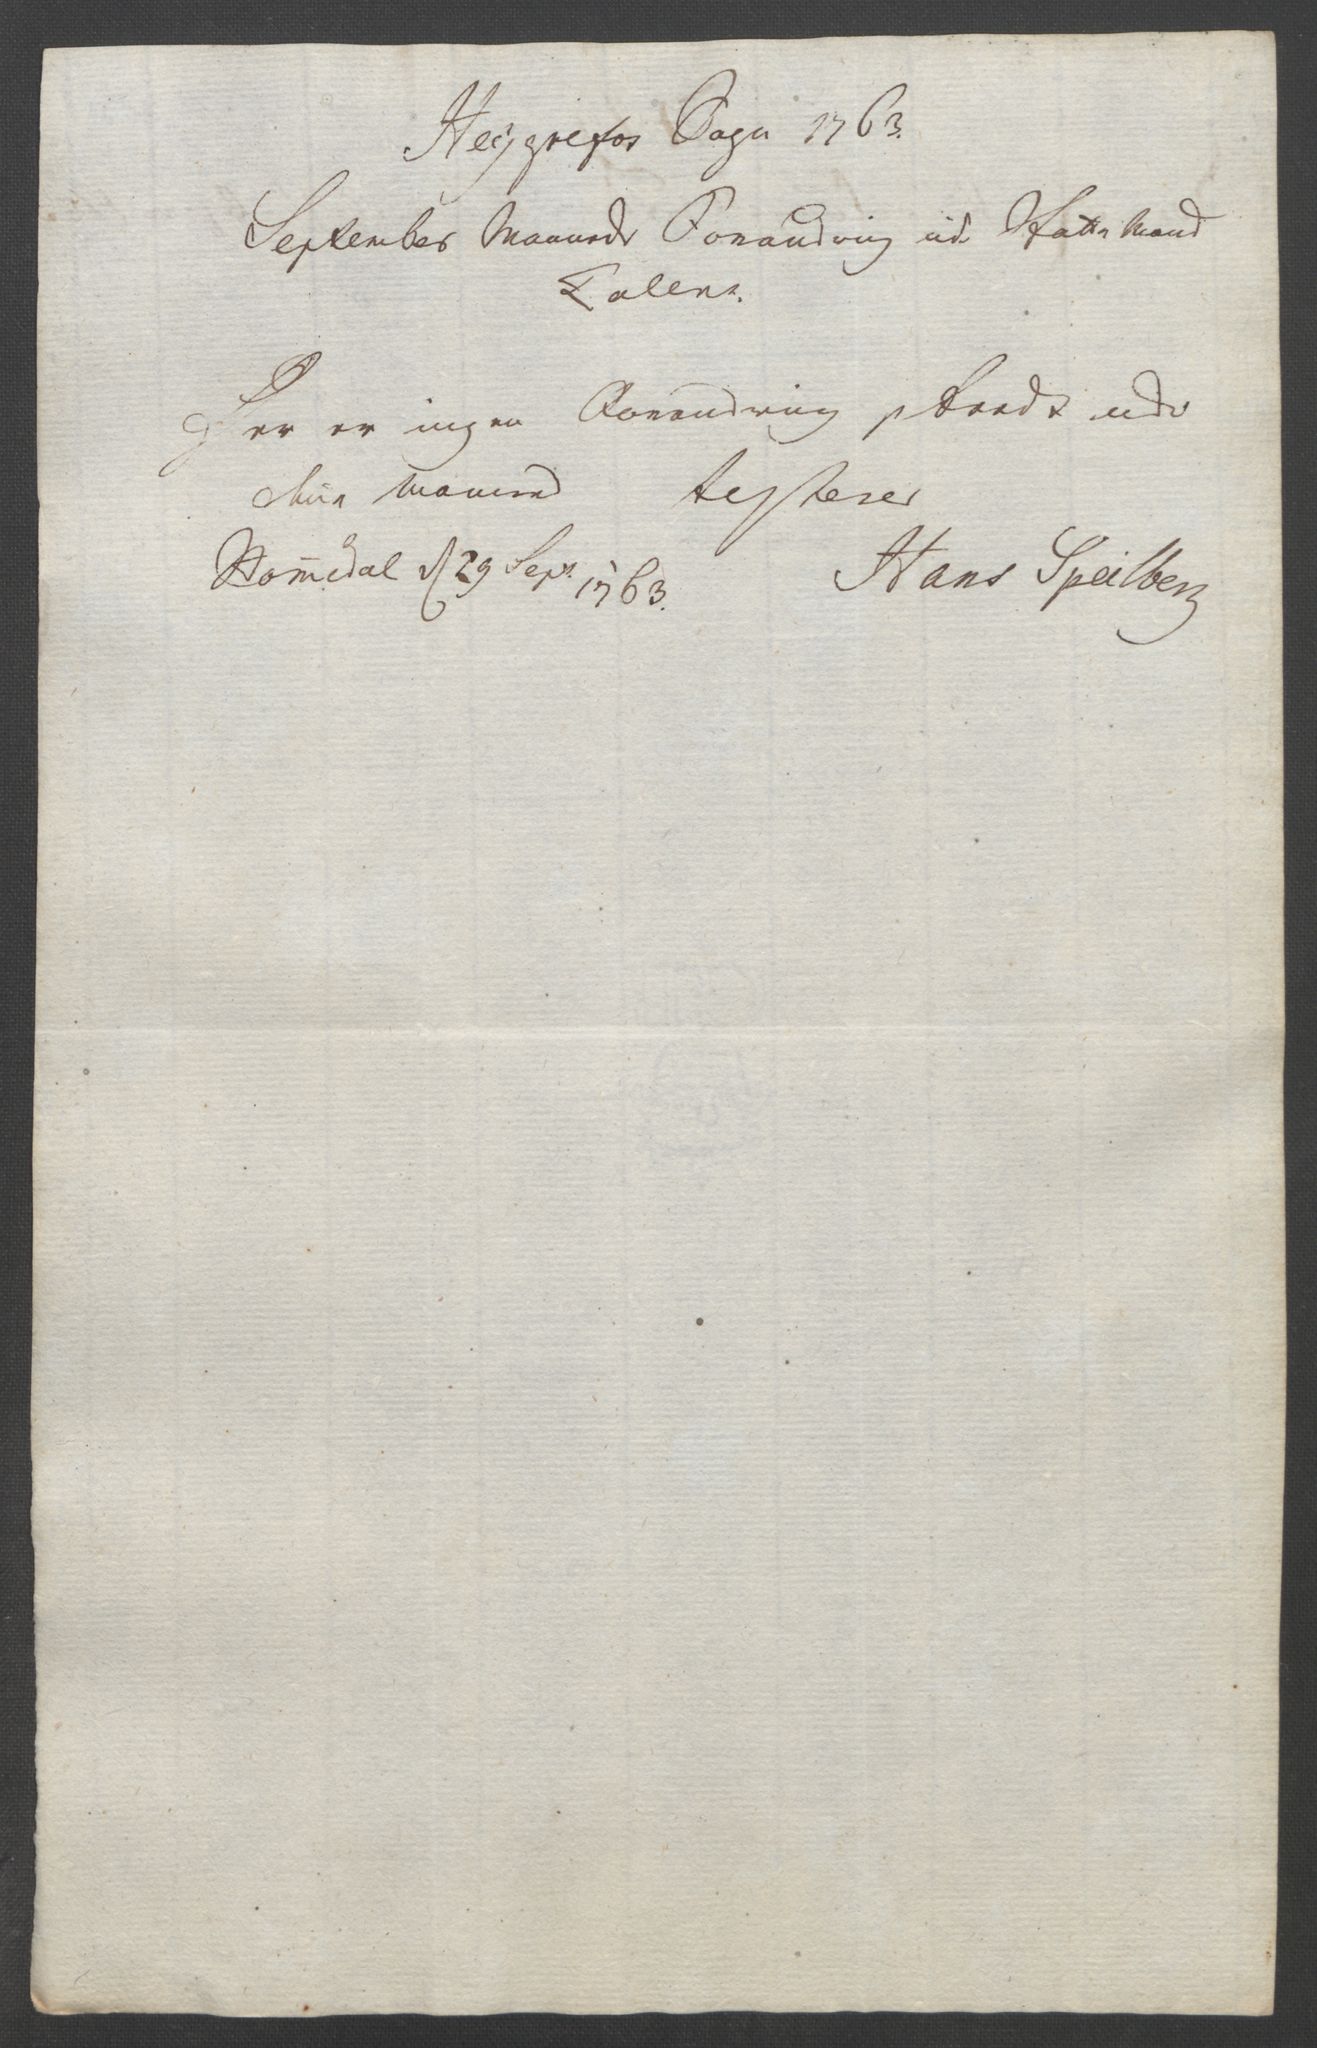 Heÿgrefos Sogn 1763.
September Maaneds Forandring udi Skatte Mand
Tallene.
Her er ingen Forandring skeed udi
denne Maaned testerer
Homedal d 29 Sept. 1763.
Hans Speilberg